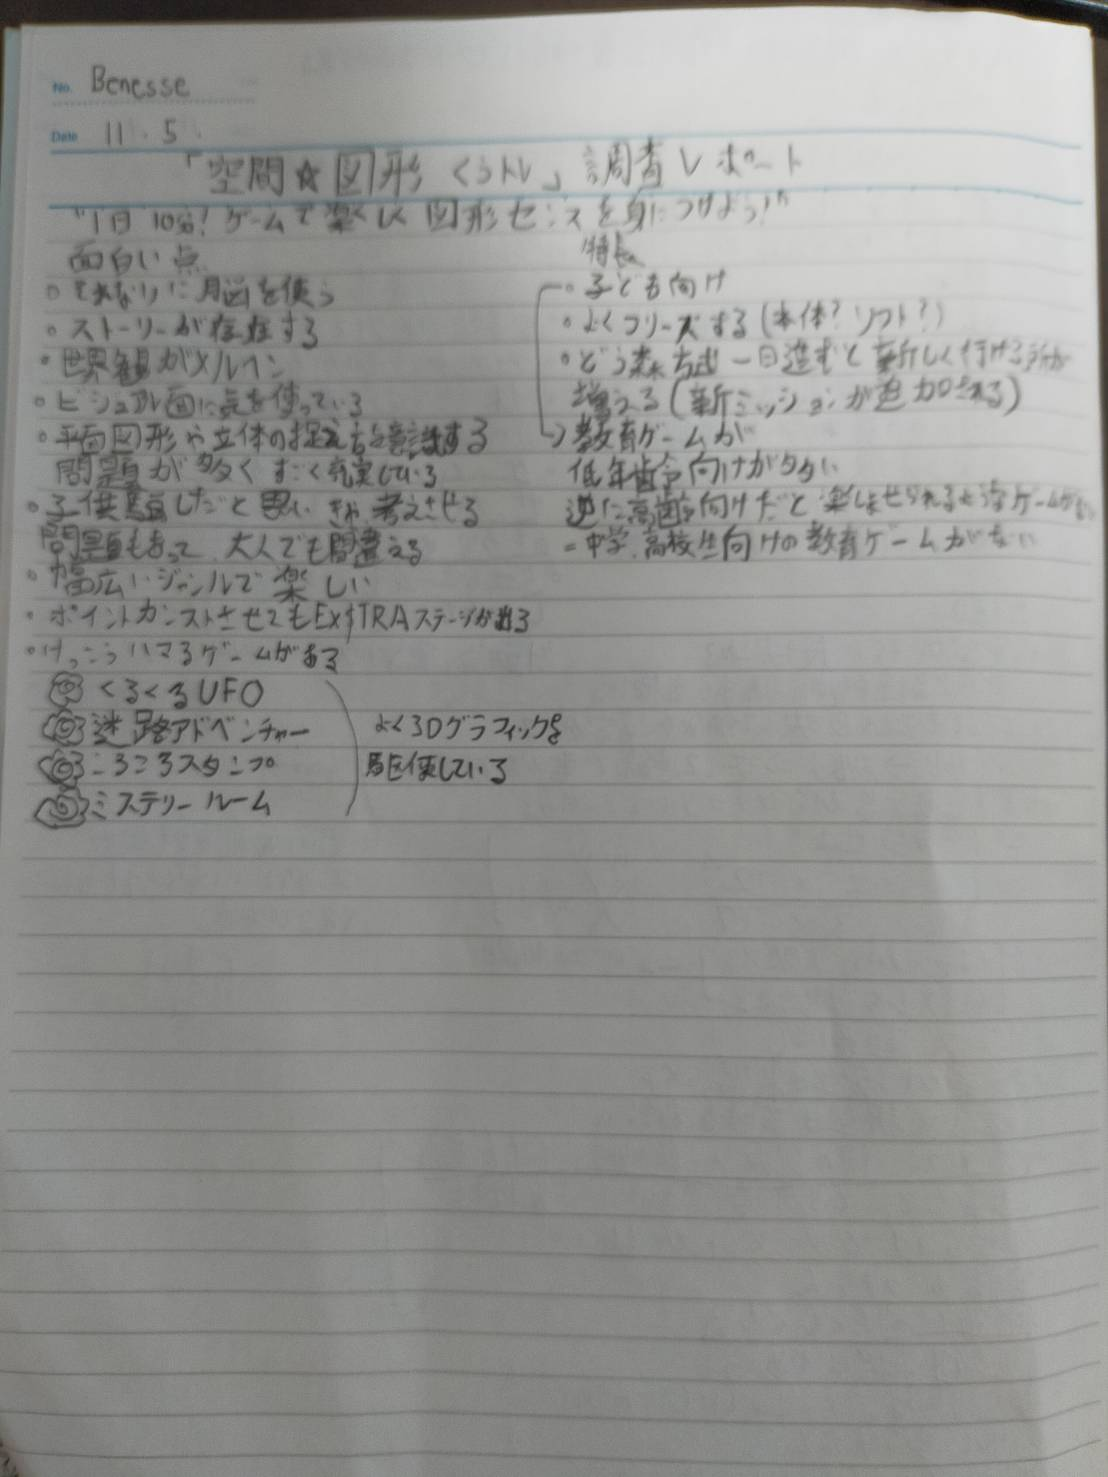 No. Benesse
Date 11.5.
「空間☆図形 くらトレ」調査レポート
"1日10分!ゲームで楽しく図形センスを身につけよう!"
面白い点
○それなりに脳を使う
○ストーリーが存在する
○世界観がメルヘン
○ビジュアル面に気を使っている
○平面図形や立体の捉え方を意識する
問題が多くすごく充実している
○子供騙しだと思いきや考えさせる
問題もあって、大人でも間違える
○幅広いジャンルで楽しい
・ポイントカンストさせてもEXSTRAステージが出る
○けっこうハマるゲームがある
くるくるUFO
迷路アドベンチャー
ころころスタンプ
ミステリールーム
よく3Dグラフィックを
駆使している
特長
○子ども向け
○よくフリーズする(本体?ソフト?)
○どう森方式 一日進むと新しく行ける所が
増える(新ミッションが追加される)
→教育ゲームが
低年齢向けが多い
逆に高齢向けだと楽しませられるようなゲームがない
=中学、高校生向けの教育ゲームがない